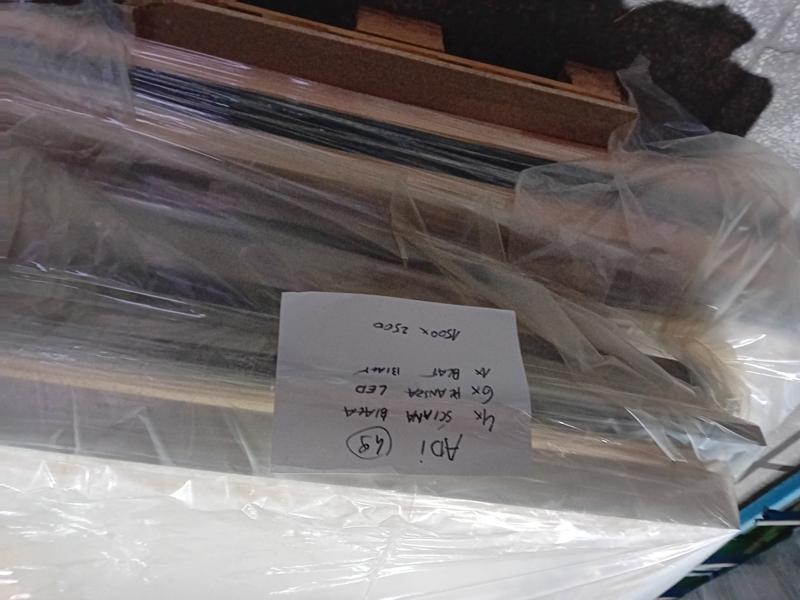 ADi 49
4x SCIANA BIAŁA
6x PLANSZA LED
1x BLAT BIAŁY
1500 x 2500